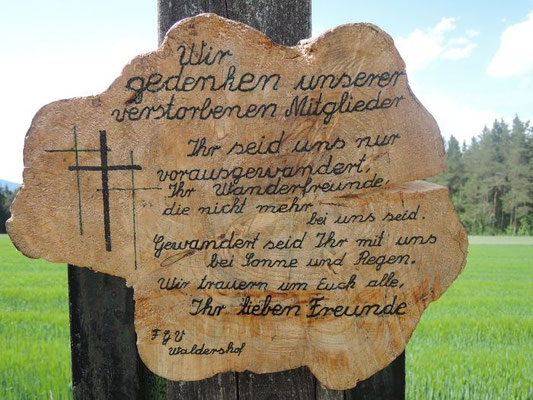 Wir
gedenken unserer
verstorbenen Mitglieder
Ihr seid uns nur
vorausgewandert,
Ihr Wanderfreunde,
die nicht mehr
bei uns seid.
Gewandert seid Ihr mit uns
bei Sonne und Regen.
Wir trauern um Euch alle,
Ihr lieben Freunde
F G V
Waldershof